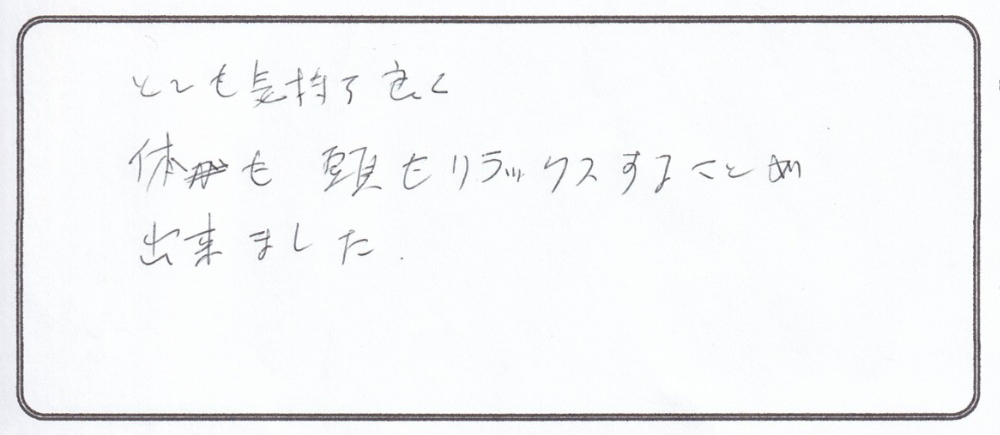 とても気持ち良く
体も頭もリラックスすることが
出来ました.